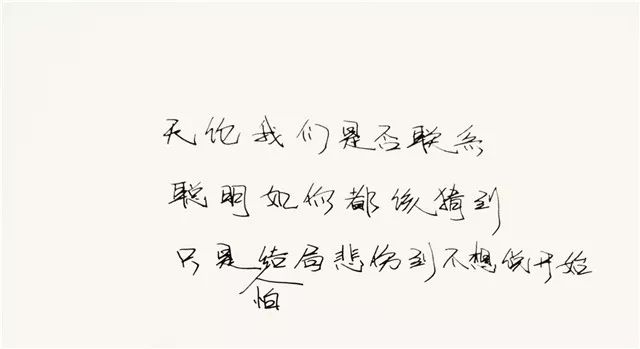 无论我们是否联系
聪明如你都该猜到
只是怕结局悲伤到不想说开始